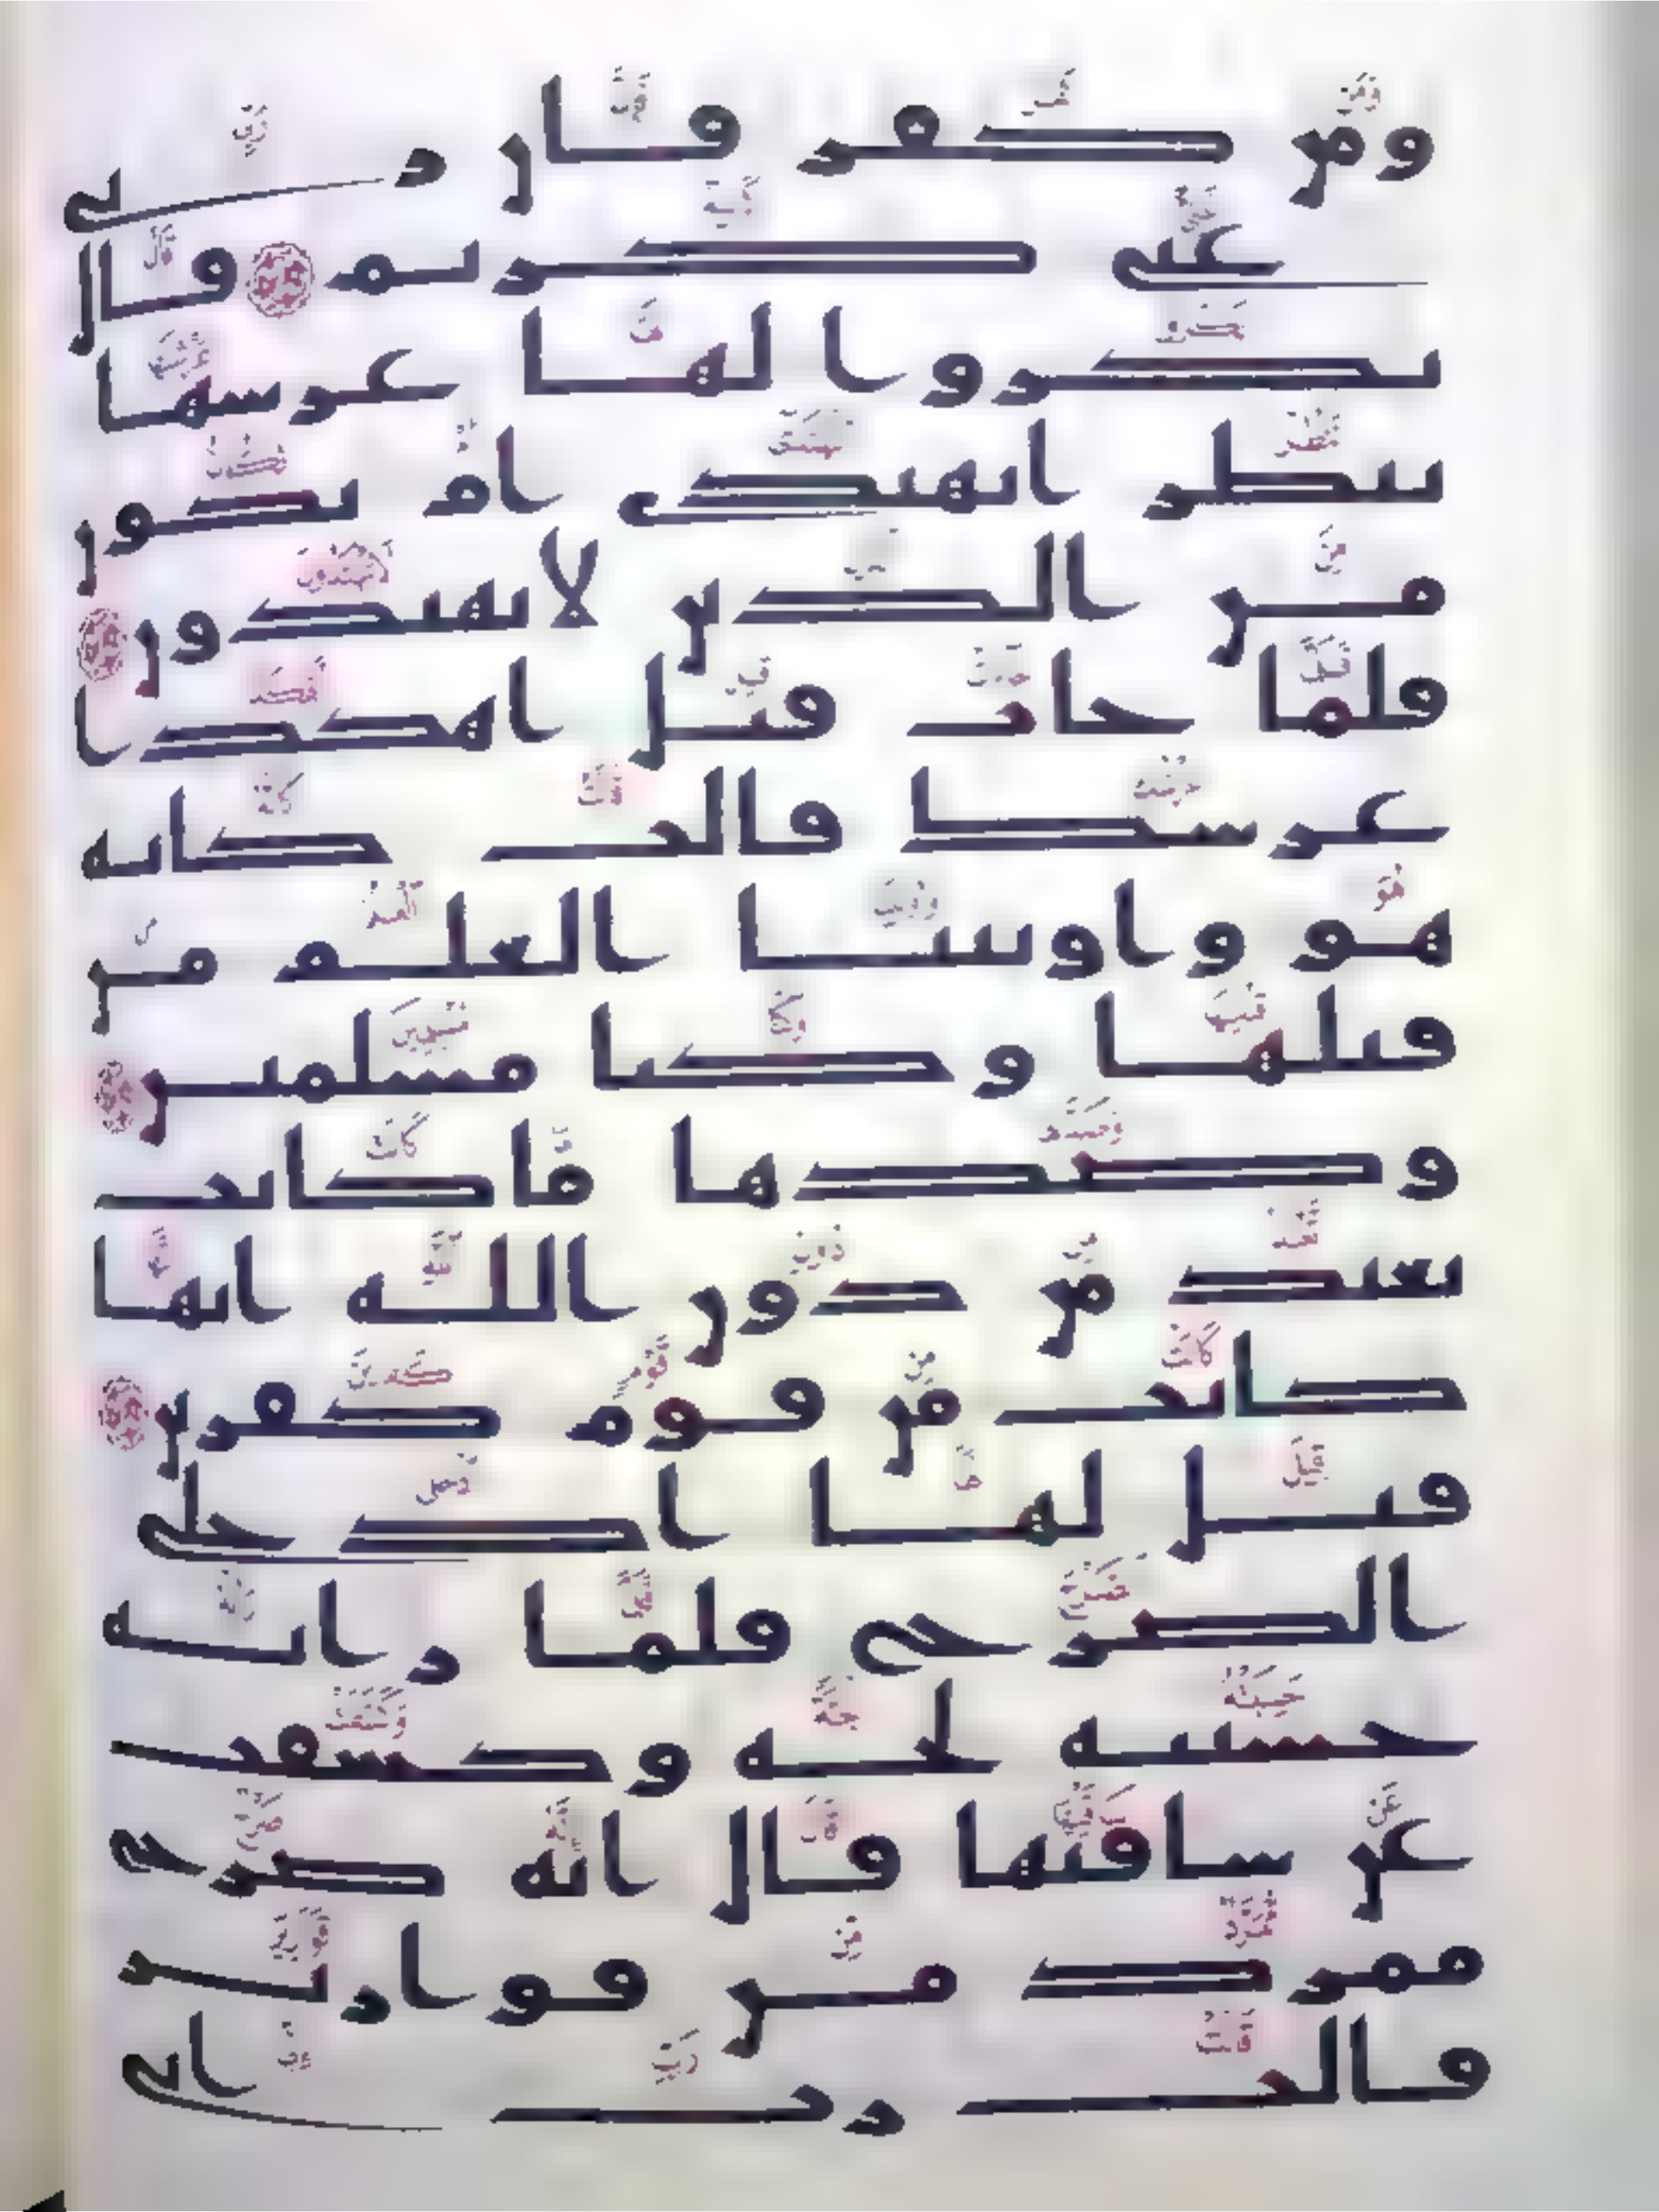 ومن كفر فان ربي
غني كريم قال
نكروا لها عرشها
ننظر اتهتدي ام تكون
من الذين لا يهتدون
فلما جات قيل اهكذا
عرشك قالت كانه
هو واوتينا العلم من
قبلها وكنا مسلمين
وصدها ما كانت
تعبد من دون الله انها
كانت من قوم كفرين
قيل لها ادخلي
الصرح فلما راته
حسبته لجة وكشفت
عن ساقيها قال انه صرح
ممرد من قوارير
قالت رب اني